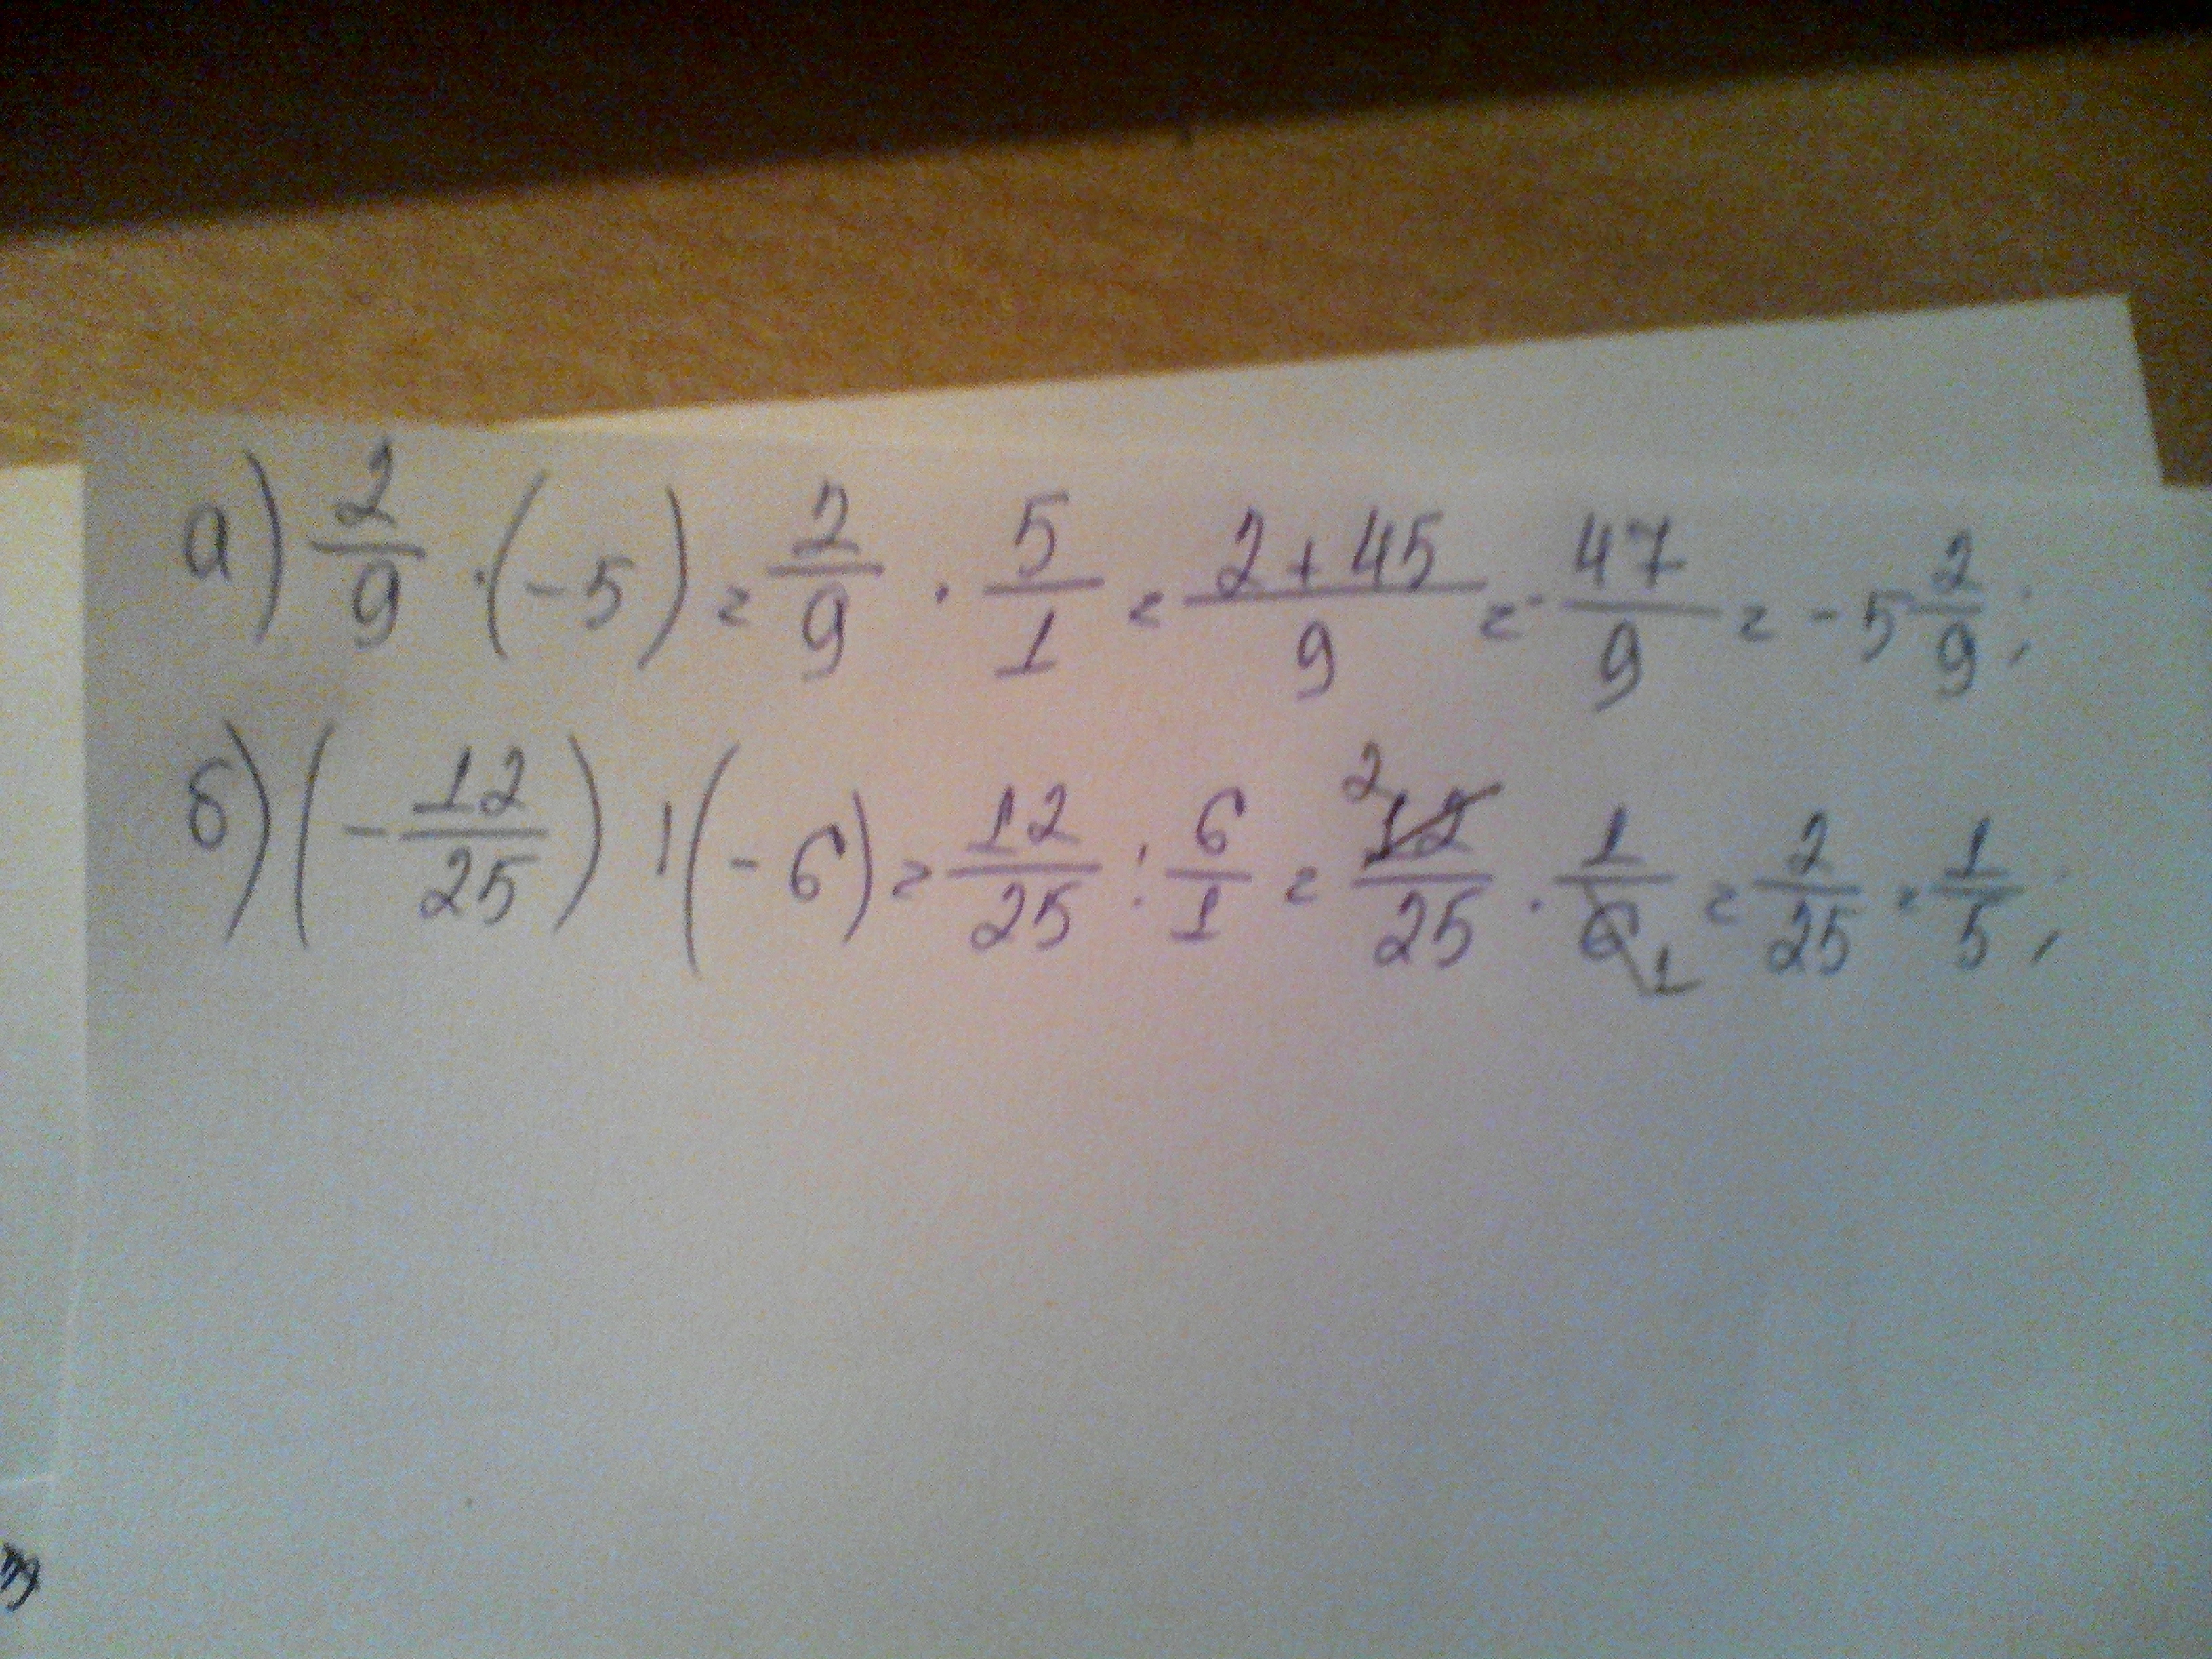 а) 2/9 · (-5) = 2/9 · 5/1 = 2+45/9 = - 47/9 = -5 2/9;
б) (-12/25) : (-6) = 12/25 : 6/1 = 2 12/25 · 1/6 1 = 2/25 · 1/5;